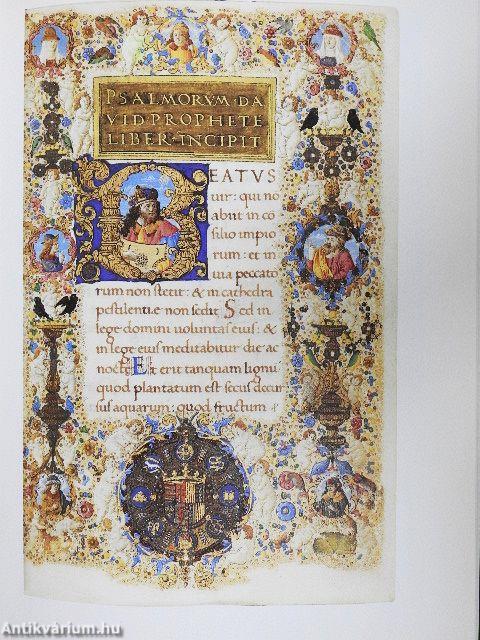 PSALMORVM·DA
VID·PROPHETE
LIBER·INCIPIT
BEATVS
uir: qui no
abiit in cō
silio impio
rum: et in
uia peccato
rum non stetit: & in cathedra
pestilentiæ non sedit. Sed in
lege domini uoluntas eius: &
in lege eius meditabitur die ac
nocte. Et erit tanquam lignū
quod plantatum est secus decur
sus aquarum: quod fructum
Antikvárium.hu